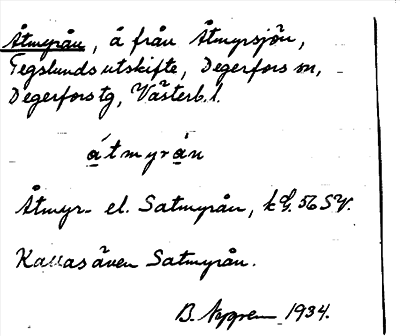 Åtmyrån, å från Åtmyrsjön,
Tegslunds utskifte, Degerfors sn,
Degerfors tg, Västerb. l.
åtmyrån
Åtmyr- el. Satmyrån, k G. 56 SV.
Kallas även Satmyrån.
B. Nygren 1934.